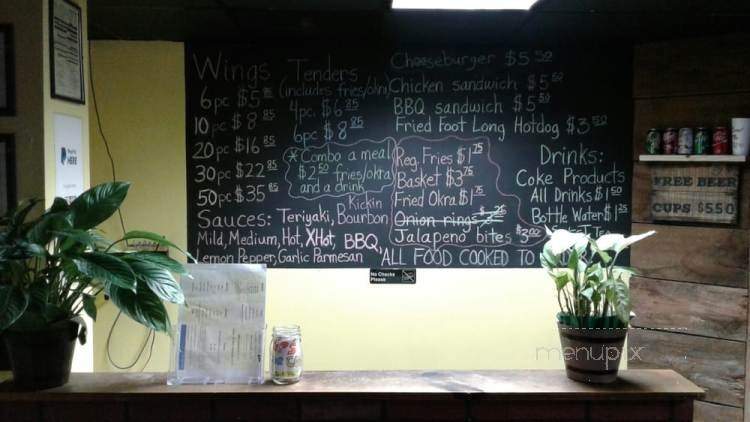 Wings
6pc $5 85
10pc $8 85
20pc $16 85
30pc $22 85
50pc $35 85
Tenders
(includes fries/okra)
4pc. $6 85
6pc $8 85
*Combo a meal
$2 50 fries/okra
and a drink
Sauces: Teriyaki, Kickin Bourbon
Mild, Medium, Hot, XHot, BBQ,
Lemon Pepper, Garlic Parmesan
Cheeseburger $5 50
Chicken sandwich $5 50
BBQ sandwich $5 50
Fried Foot Long Hotdog $3 50
Reg. Fries $1 75
Basket $3 75
Fried Okra $1 75
Onion rings
Jalapeno bites $3.00
Drinks:
Coke Products
All Drinks $1 50
Bottle Water $1 25
Tea
*ALL FOOD COOKED TO
FREE BEER
CUPS $5.50
No Checks
Please
HERE
menupix